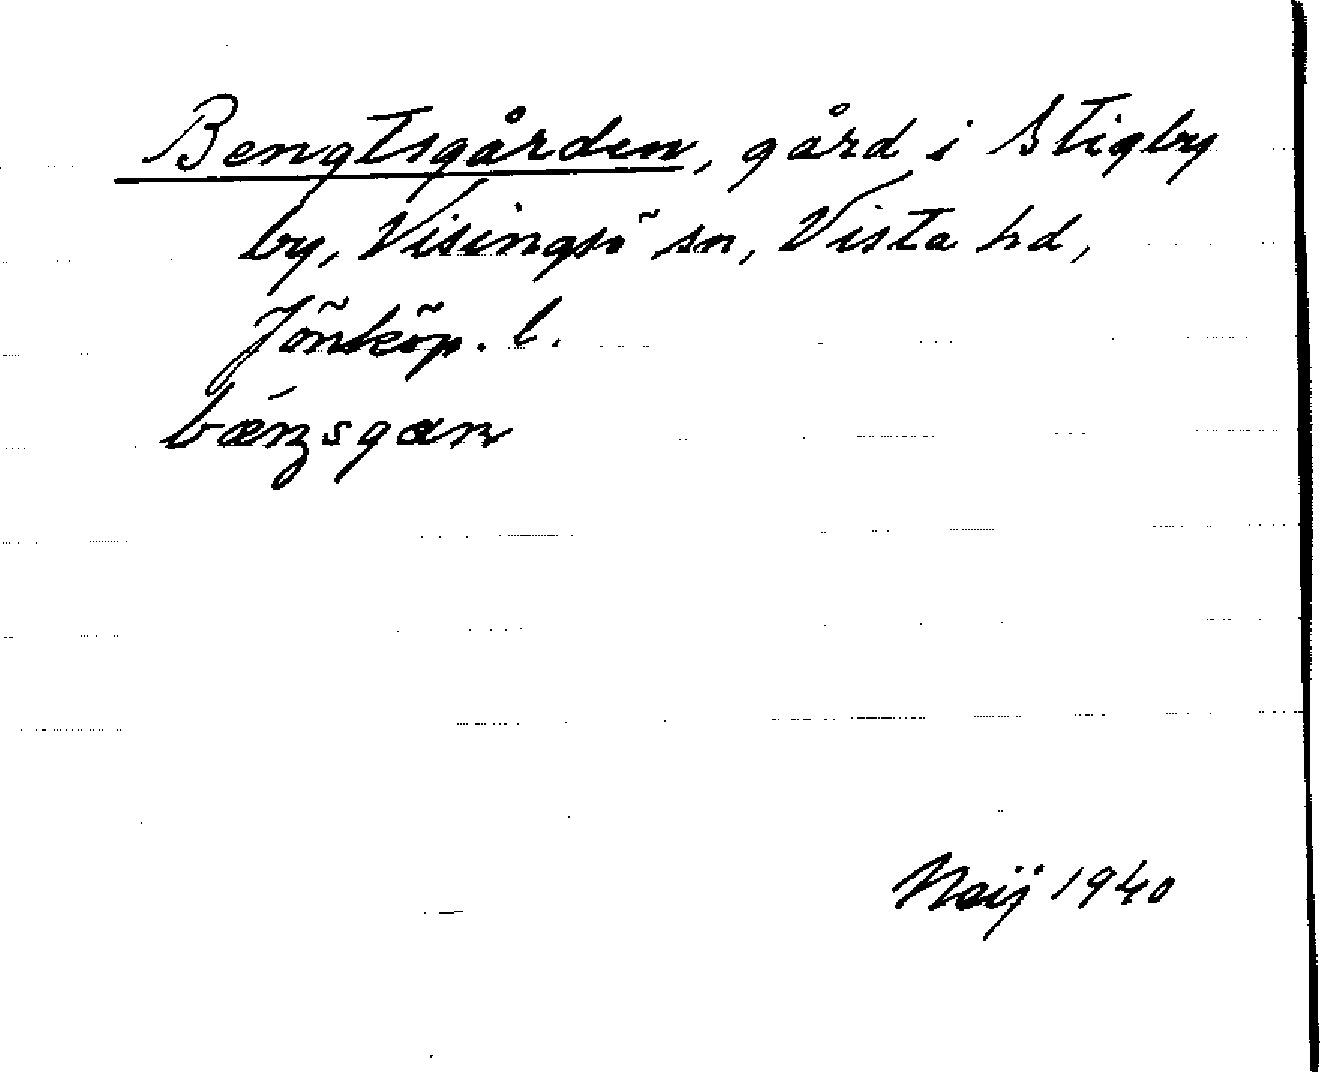 Bengtsgården, gård i Stigby
by, Visingsö sn, Vista hd,
Jönköp. l.
bǽnsgan
Neij 1940